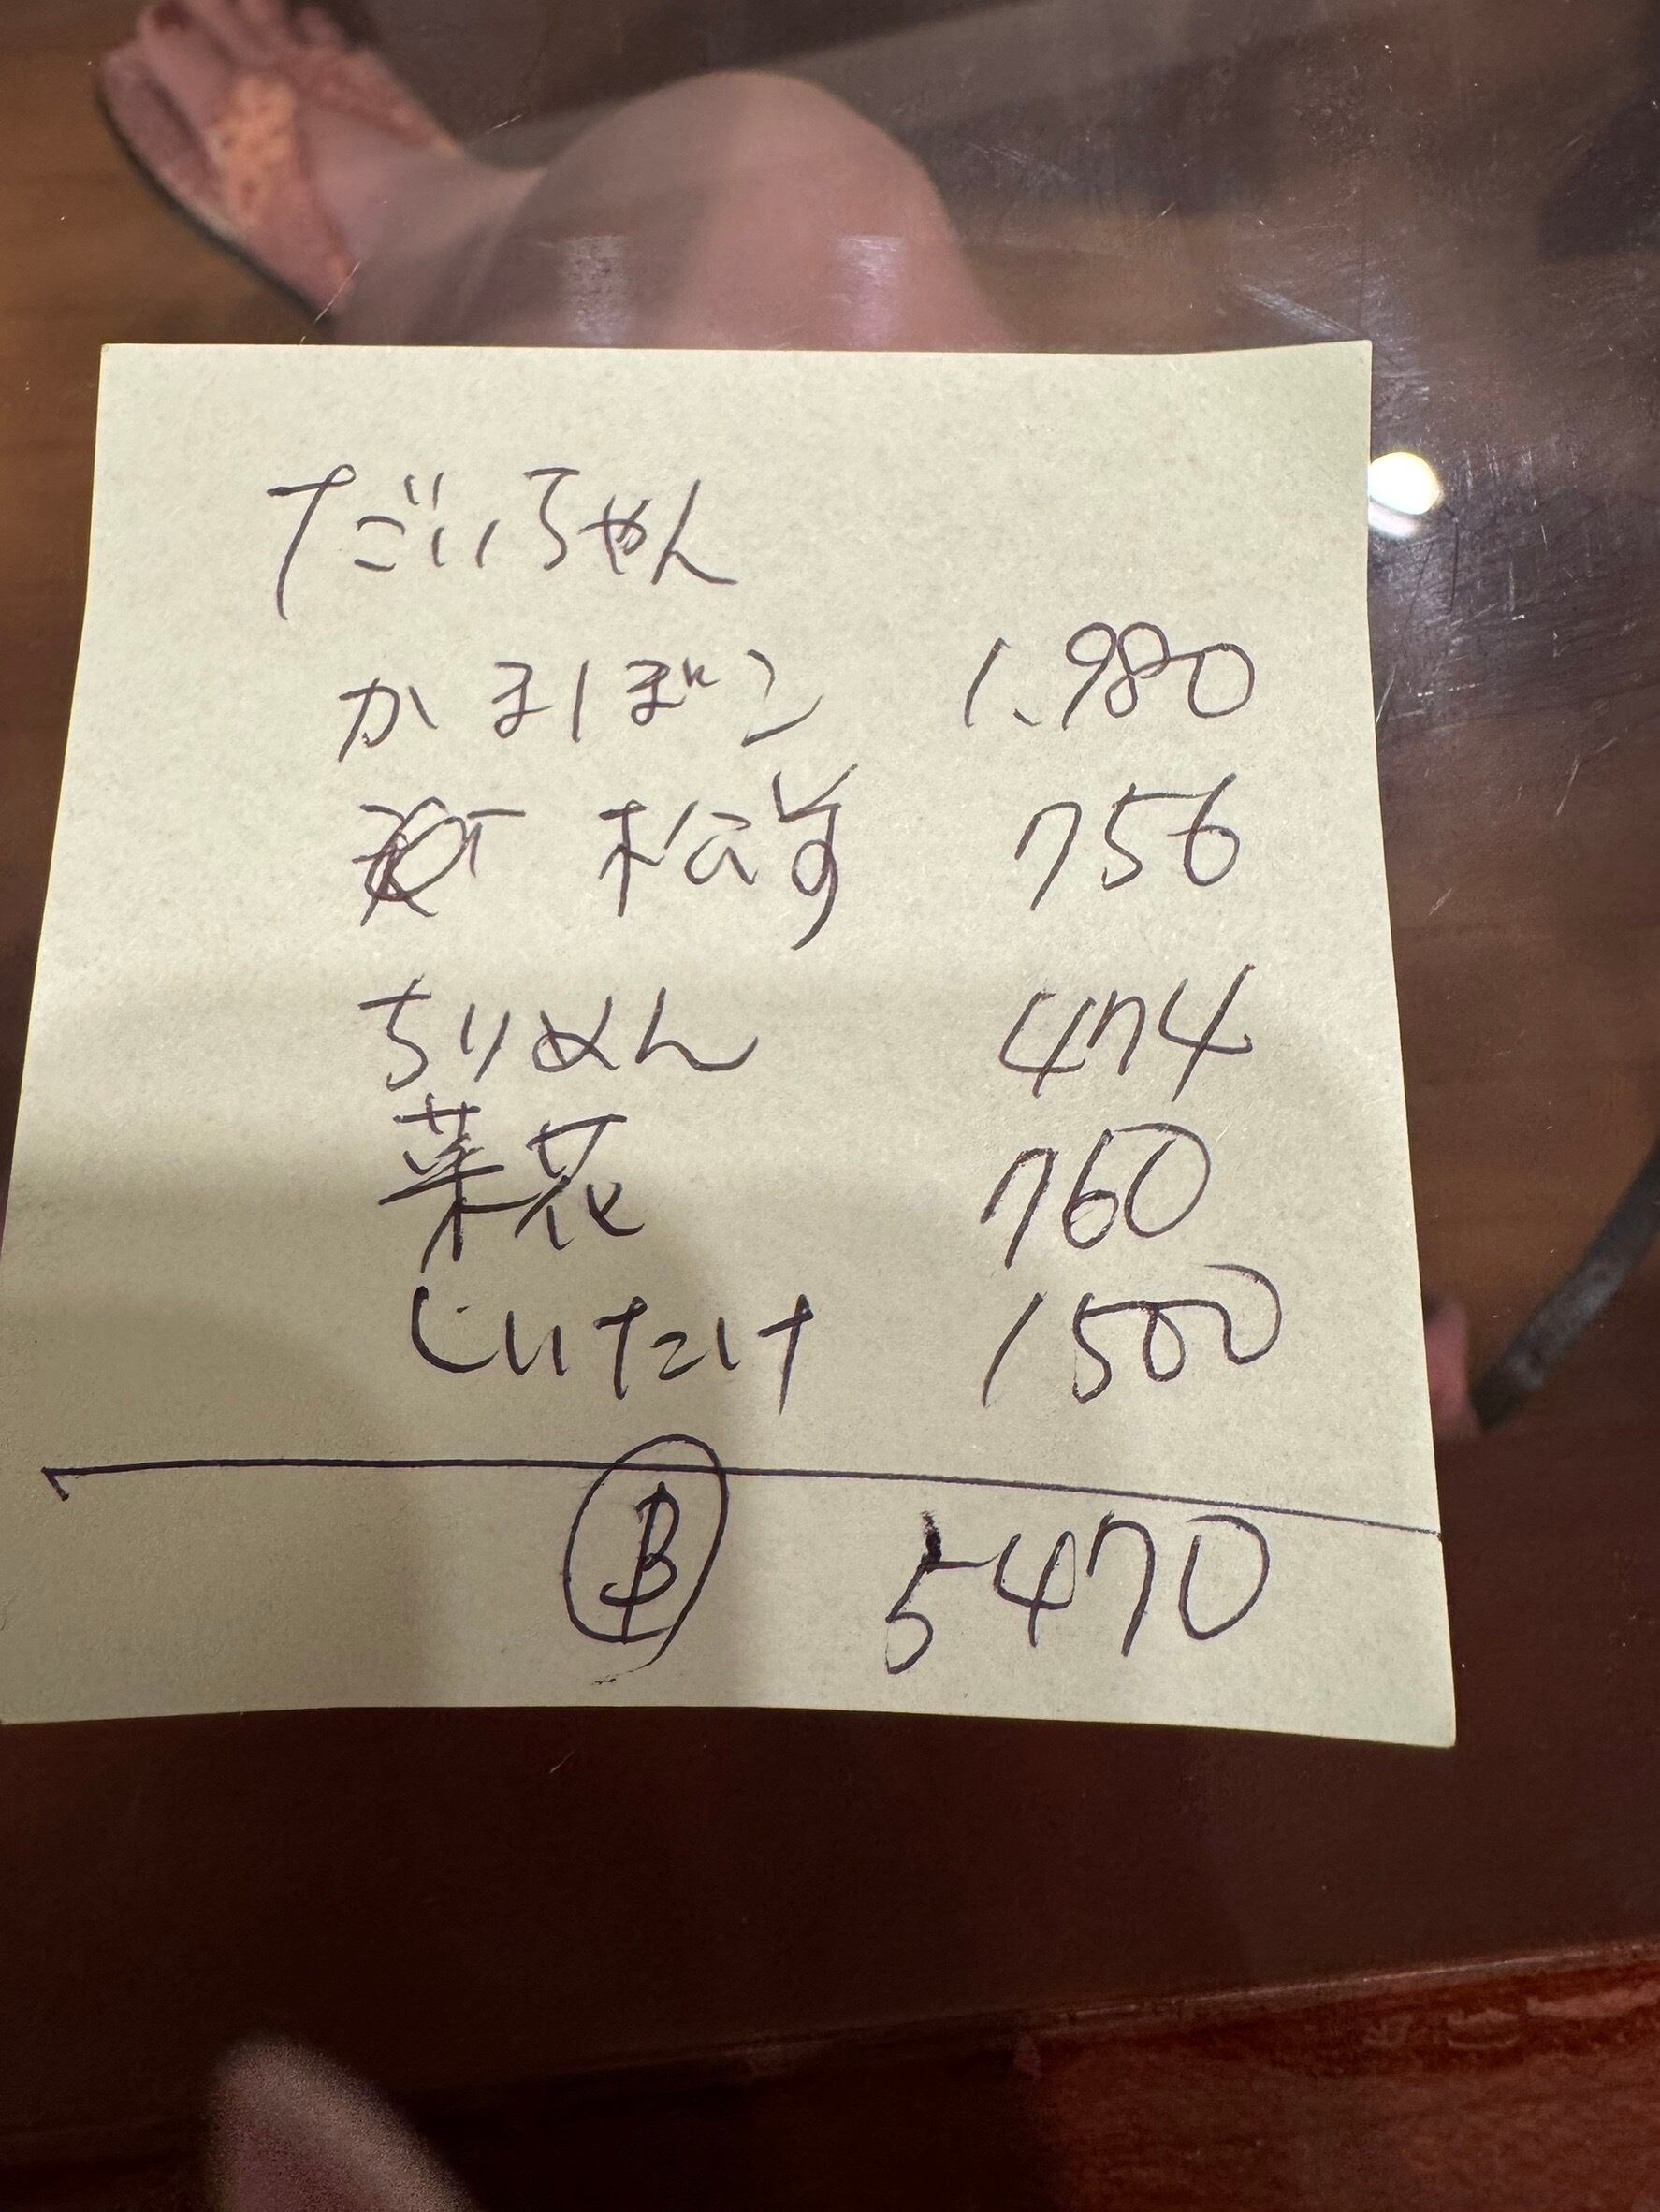 だいちゃん
かまぼこ 1.980
松前 756
ちりめん 474
菜花 760
しいたけ 1500
B 5470